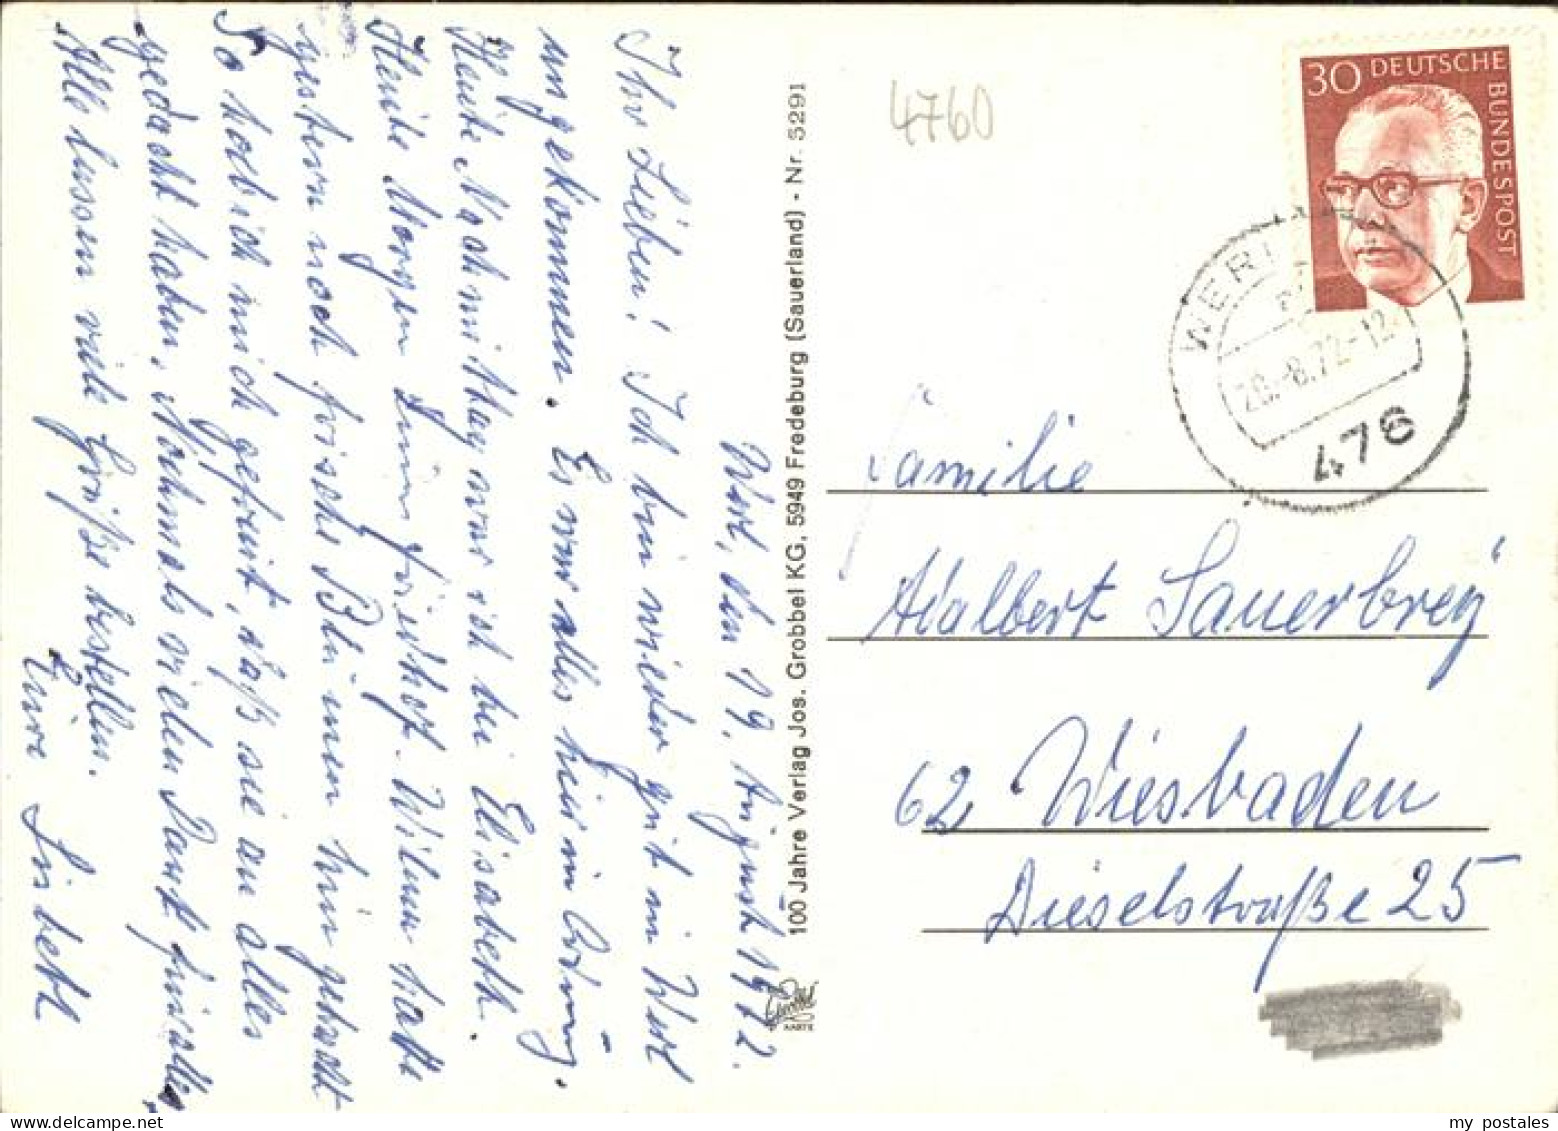 Werl, den 19. August 1972.
Ihr Lieben! Ich bin wieder gut in Werl
angekommen. Es war alles hier in Ordnung.
Heute Nachmittag war ich bei Elisabeth.
Heute Morgen zum Friedhof. Wilma hatte
gestern noch frische Blumen hin gebracht
So hab ich mich gefreut, daß sie an alles
gedacht haben. Nochmals vielen Dank für alles
Alle lassen viele Grüße bestellen.
Eure Lisbeth
100 Jahre Verlag Jos. Grobbel KG, 5949 Fredeburg (Sauerland) - Nr. 5291
KARTE
4760
30 DEUTSCHE
BUNDESPOST
WERL
20.-8.72-12
476
Familie
Adalbert Sauerbrey
62 Wiesbaden
Dieselstraße 25
my postales